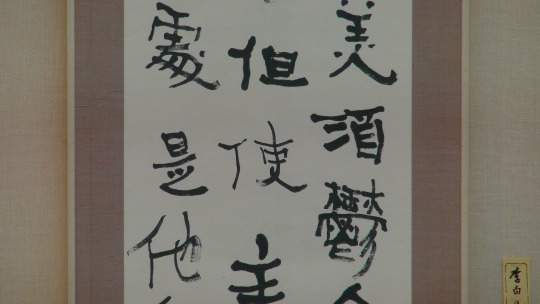 美酒鬱
但使主
處是他
李白